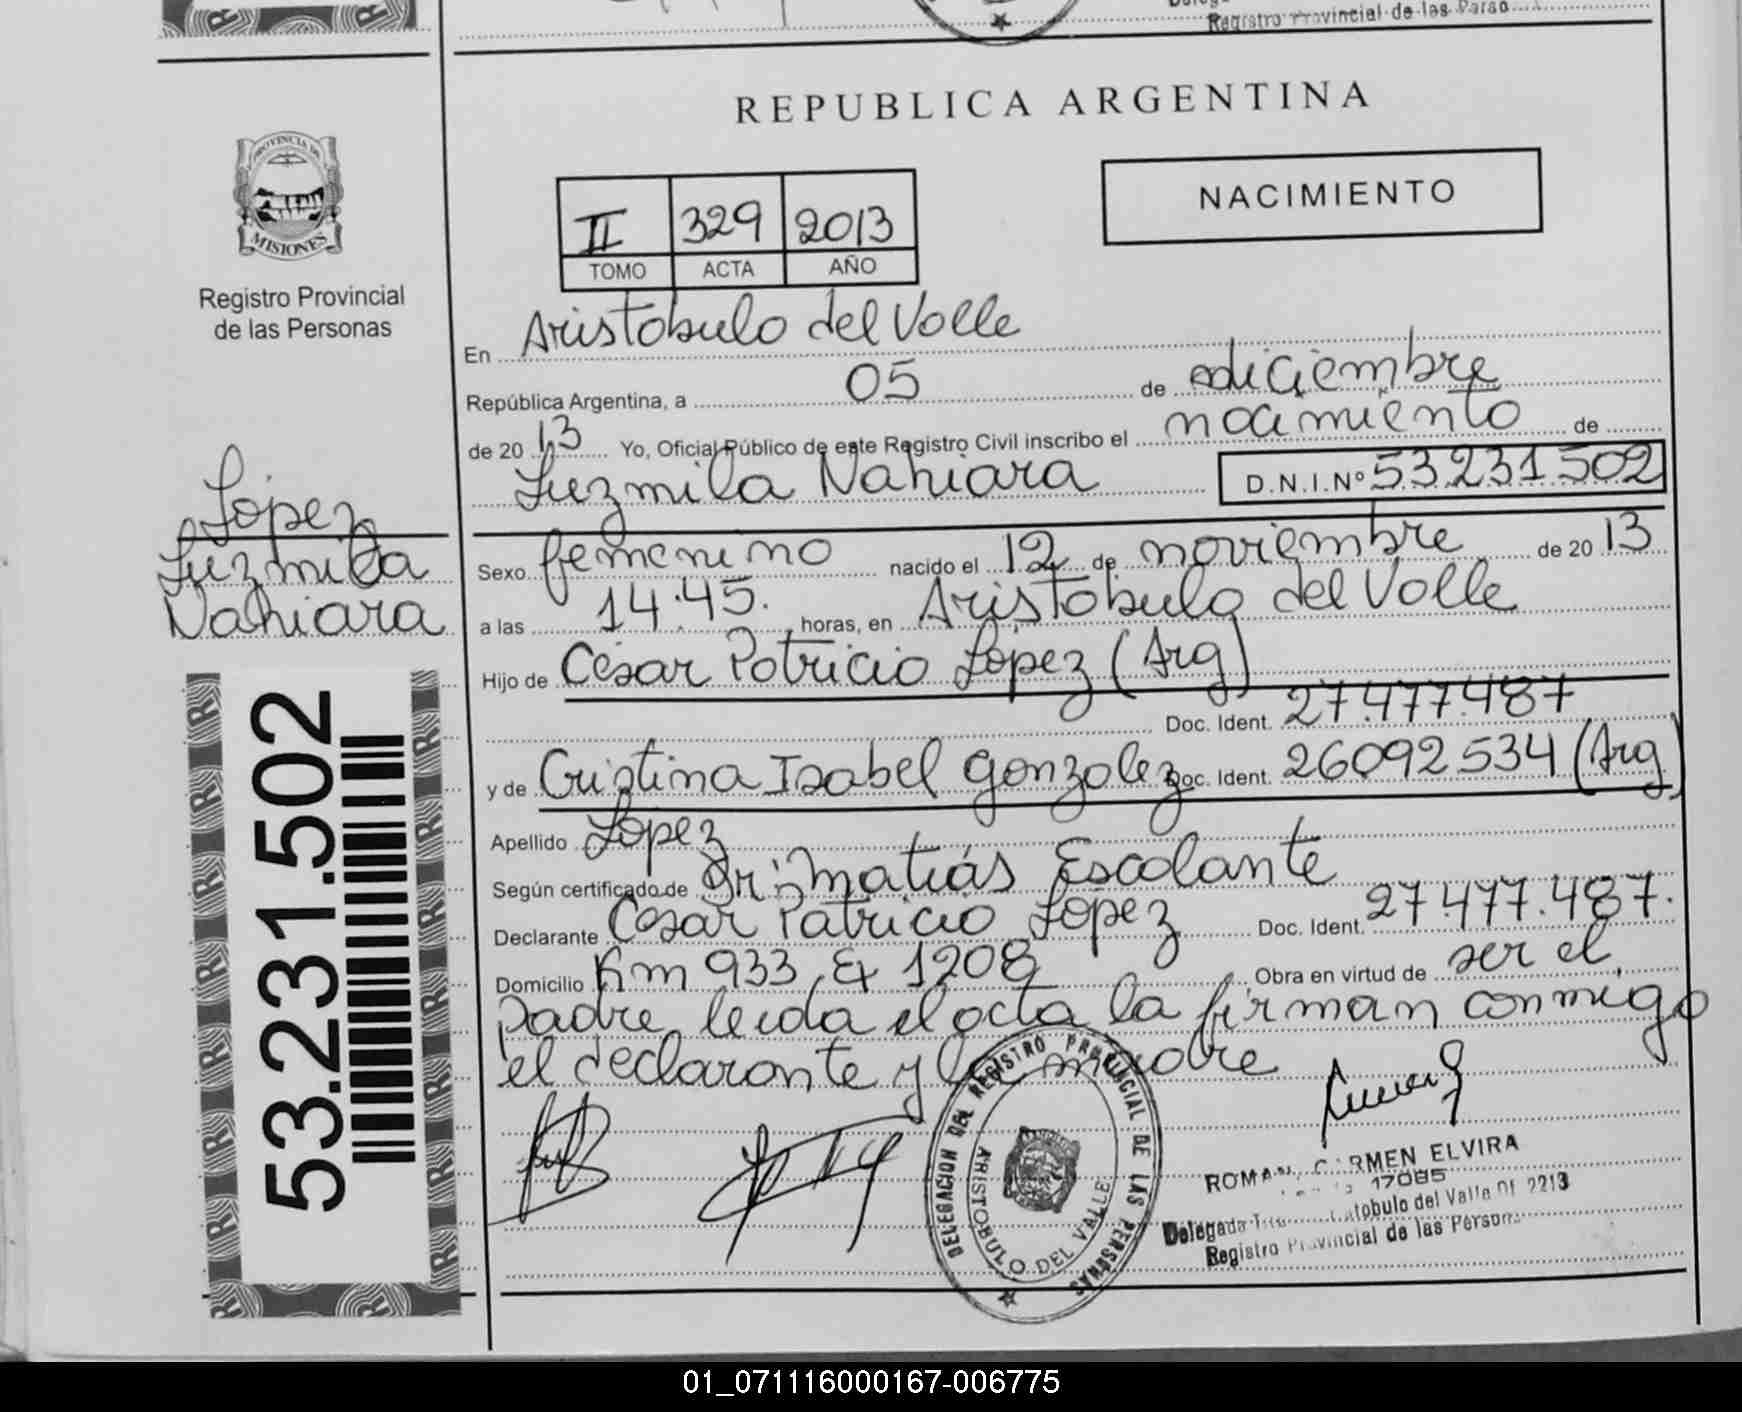 Registro Provincial de las Perso
REPUBLICA ARGENTINA
PROVINCIA DE
MISIONES
Registro Provincial
de las Personas
NACIMIENTO
II 329 2013
TOMO ACTA AÑO
En Aristobulo del Valle
República Argentina, a 05 de diciembre
de 20 13 Yo, Oficial Público de este Registro Civil inscribo el nacimiento de
Luzmila Nahiara D.N.I.Nº 53.231.502
López
Luzmila
Nahiara
Sexo femenino nacido el 12 de noviembre de 20 13
a las 14:45. horas, en Aristobulo del Valle
Hijo de César Patricio López (Arg)
Doc. Ident. 27.477.487
y de Cristina Isabel Gonzalez Doc. Ident. 26092534 (Arg)
Apellido López
Según certificado de Dr. Matiás Escalante
Declarante Cesar Patricio Lopez Doc. Ident. 27.477.487.
Domicilio Km 933 Ex 1208 Obra en virtud de ser el
padre, leida el acta la firman conmigo
el declarante y la madre
53.231.502
DELEGACION DEL REGISTRO PROVINCIAL DE LAS PERSONAS
ARISTOBULO DEL VALLE
ROMAN CARMEN ELVIRA
17085
Delegada del Valle Of 2213
Registro Provincial de las Personas
01_071116000167-006775